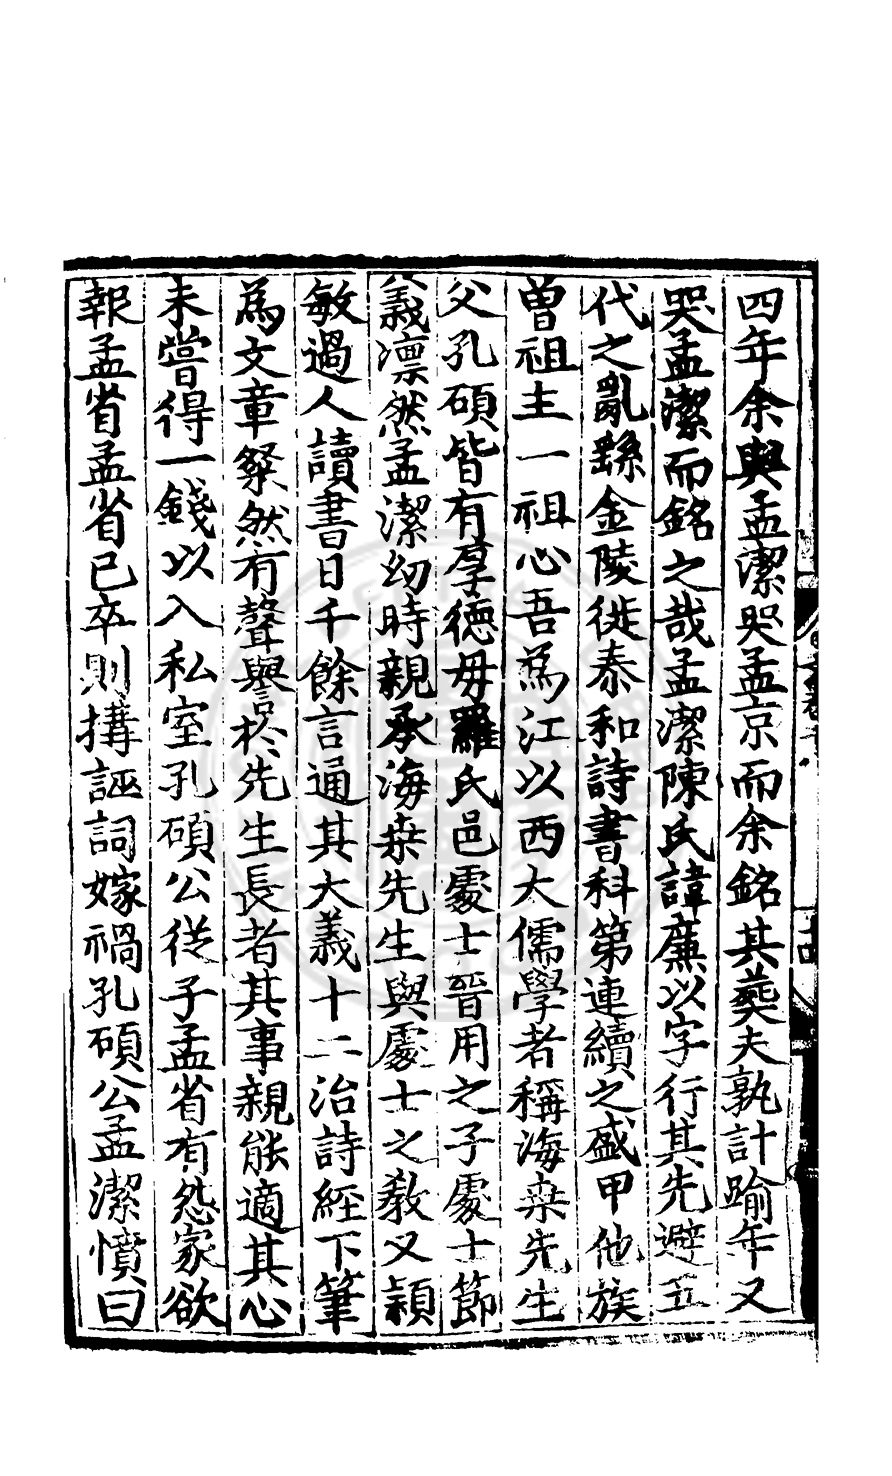 四年余與孟潔哭孟京而余銘其葬夫孰計踰年又
哭孟潔而銘之哉孟潔陳氏諱廉以字行其先避五
代之亂繇金陵徙泰和詩書科第連續之盛甲他族
曽祖主一祖心吾為江以西大儒學者稱海桒先生
父孔碩皆有厚德毋羅氏邑處士晉用之子處士節
義凛然孟潔幼時親承海桒先生與處士之教又穎
敏過人讀書日千餘言通其大義十二治詩經下筆
為文章粲然有聲譽扵先生長者其事親能適其心
未嘗得一錢以入私室孔碩公從子孟省有怨家欲
報孟省孟省已卒則搆誣詞嫁禍孔碩公孟潔憤曰